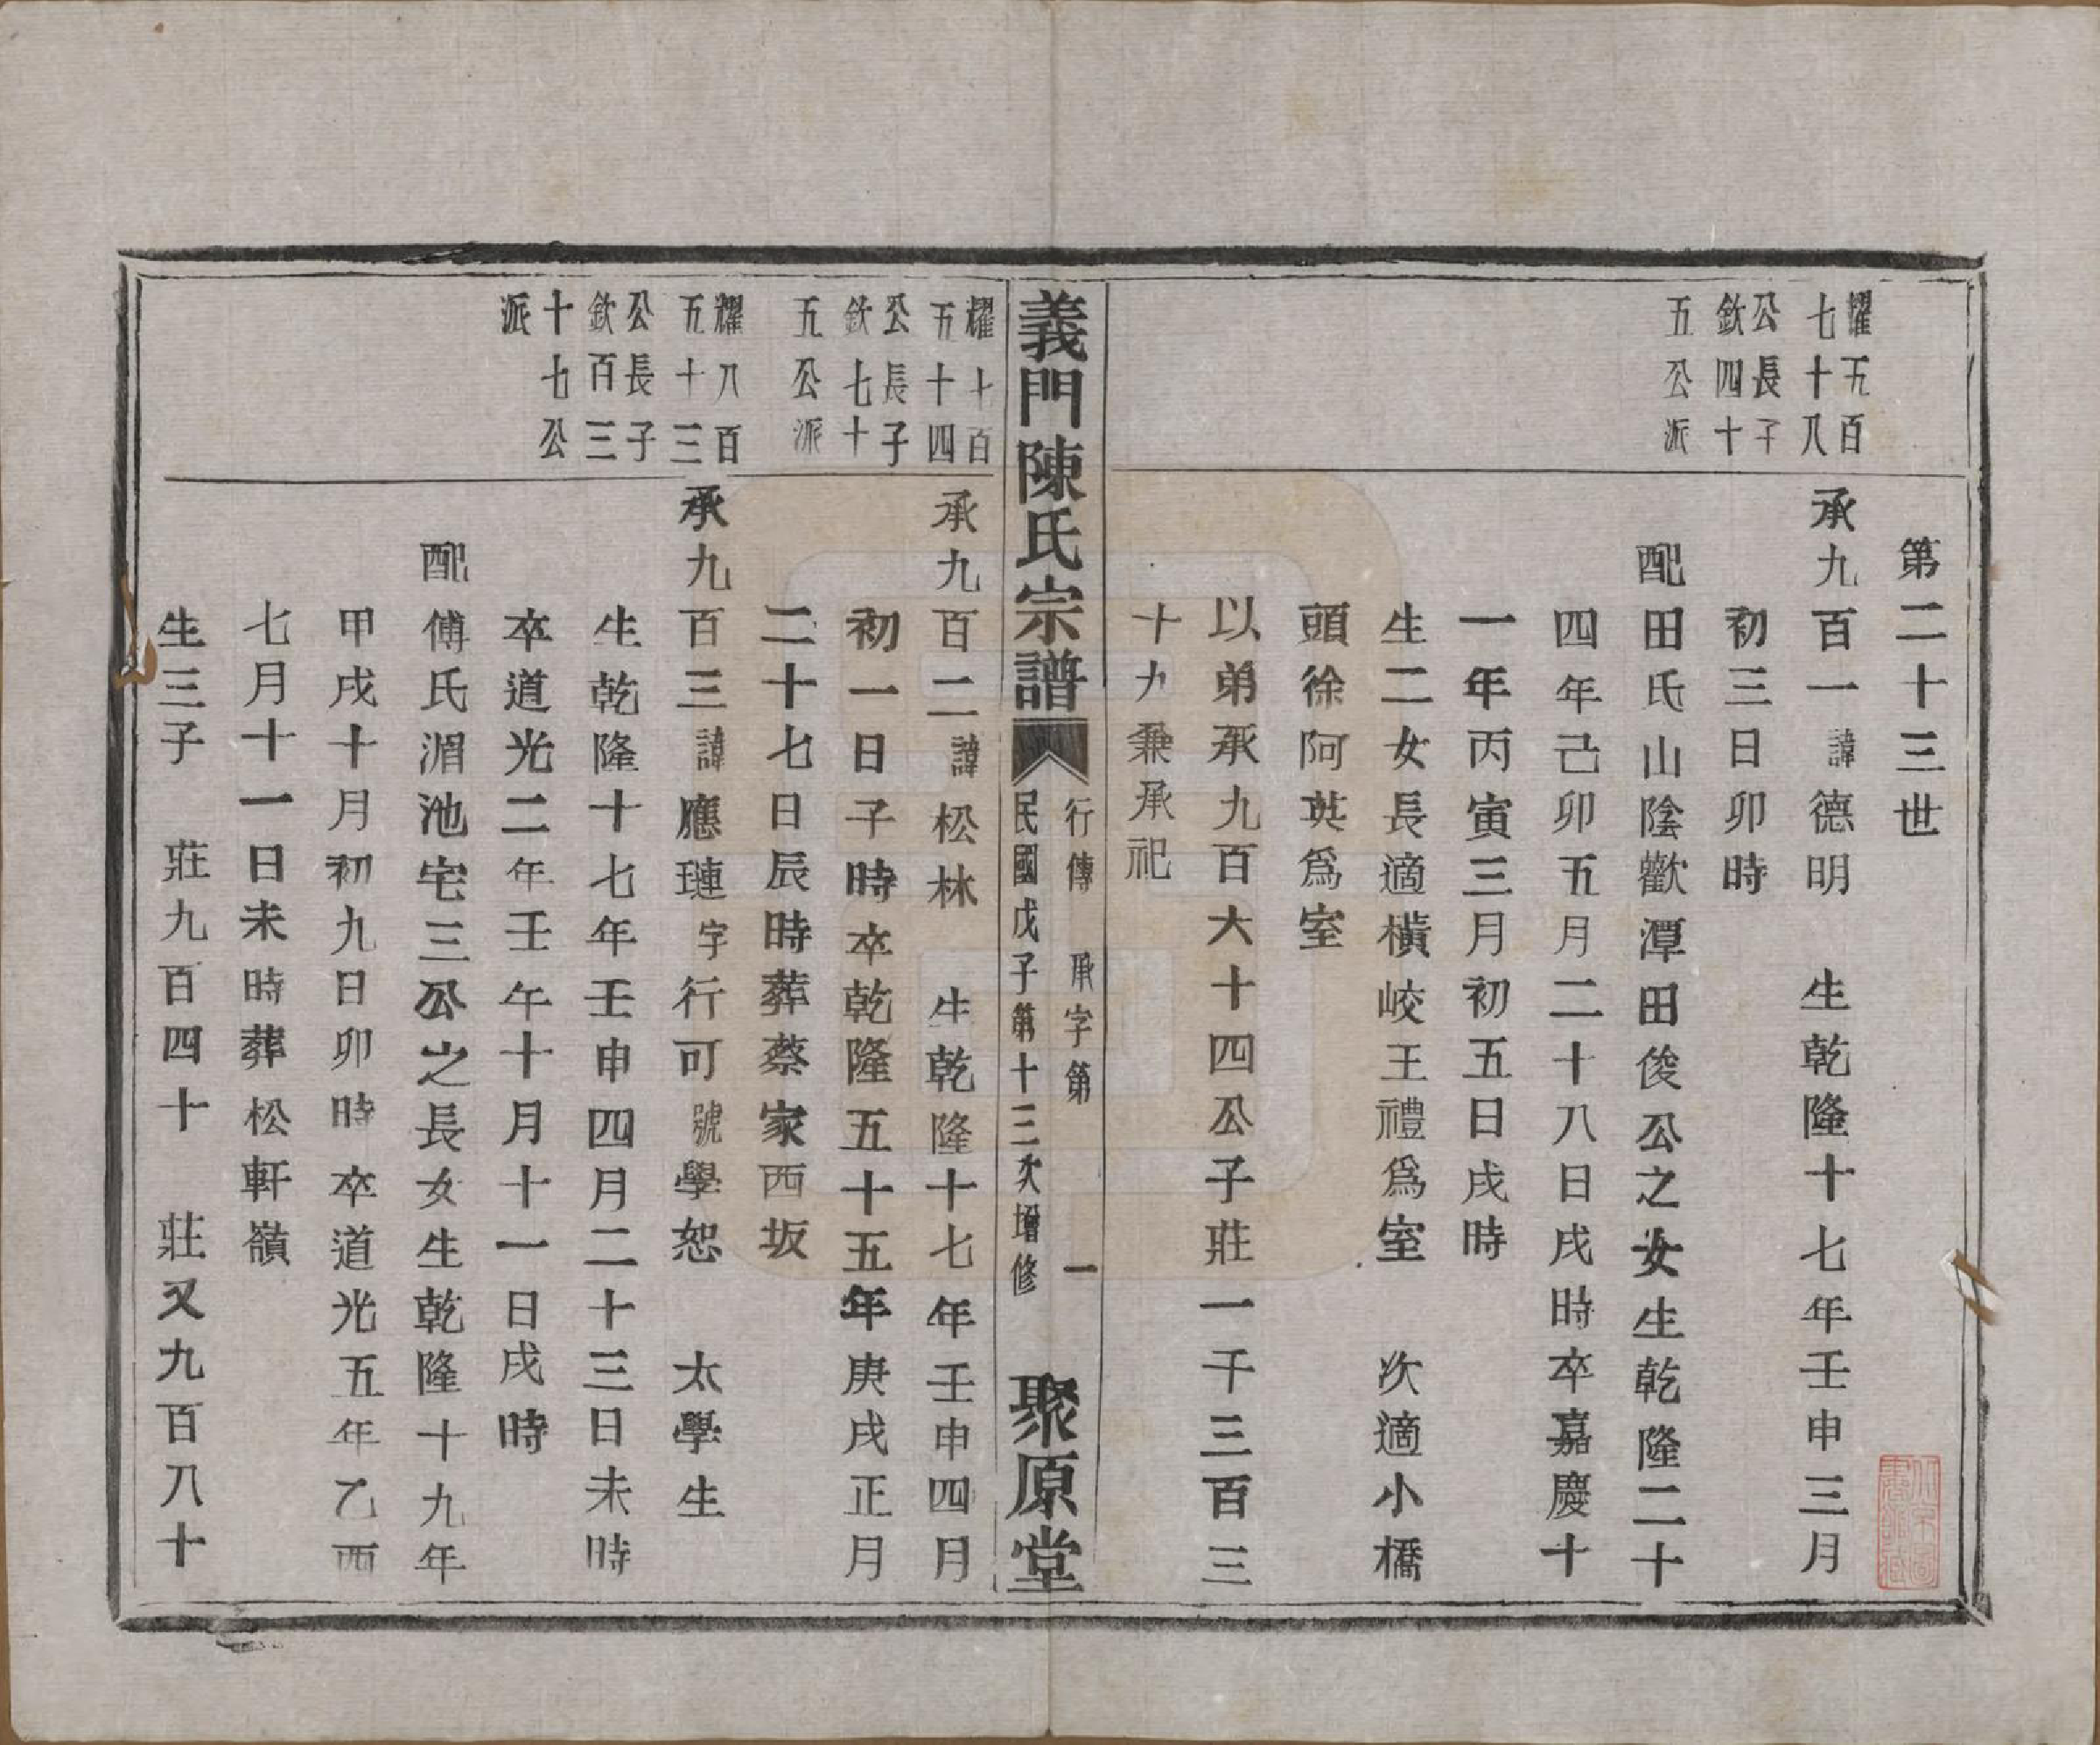 第二十三世
耀五百
七十八
公長子
欽四十
五公派
承九百一諱德明 生乾隆十七年壬申三月
初三日卯時
配田氏山陰歡潭田俊公之女生乾隆二十
四年己卯五月二十八日戌時卒嘉慶十
一年丙寅三月初五日戌時
生二女長適橫峧王禮爲室 次適小橋
頭徐阿英爲室
以弟承九百大十四公子莊一千三百三
十九兼承祀
義門陳氏宗譜
行傳 承字第 一
民國戊子第十三次增修
聚原堂
耀十百
五十四
公長子
欽七十
五公派
承九百二諱松林 生乾隆十七年壬申四月
初一日子時卒乾隆五十五年庚戌正月
二十七日辰時葬蔡家西坂
耀八百
五十三
公長子
欽百三
十七公
派
承九百三諱應璉字行可號學恕 太學生
生乾隆十七年壬申四月二十三日未時
卒道光二年壬午十月十一日戌時
配傅氏湄池宅三公之長女生乾隆十九年
甲戌十月初九日卯時 卒道光五年乙酉
七月十一日未時葬松軒嶺
生三子 莊九百四十 莊又九百八十